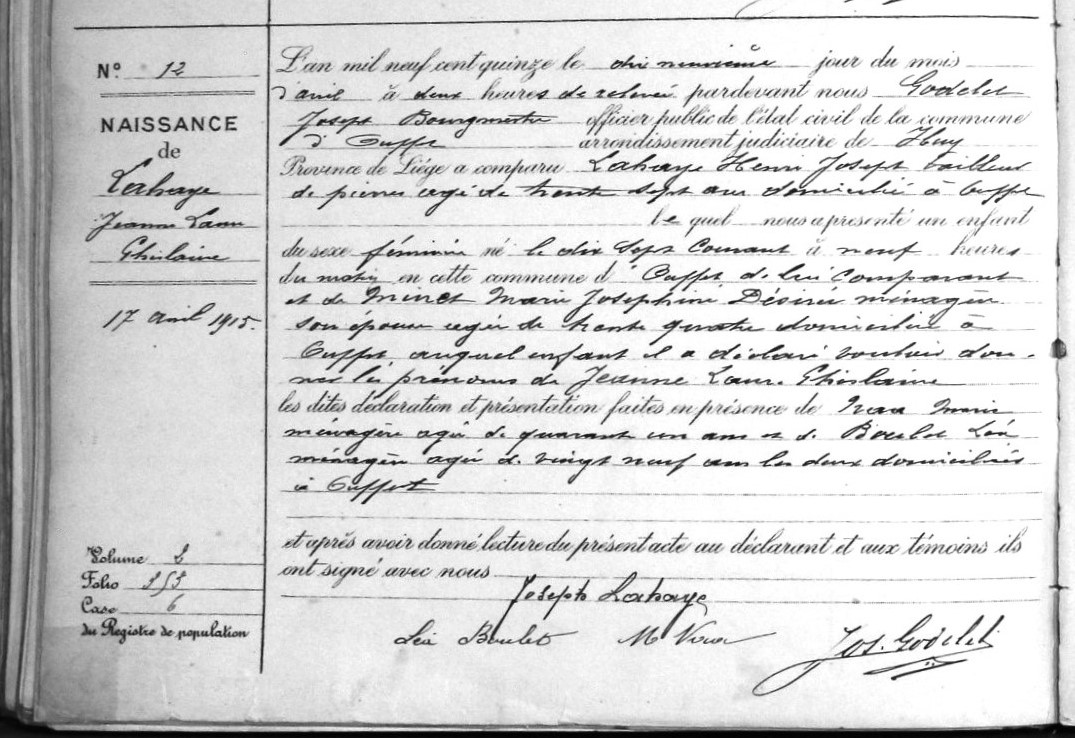 N° 12
NAISSANCE
de
Lahaye
Jeanne Laure
Ghislaine
17 avril 1915.
Volume 2
Folio
Case 6
du Registre de population
L'an mil neuf cent quinze le dix neuvième jour du mois
d'avril à deux heures de relevée pardevant nous Godelet
Joseph Bourgmestre officier public de l'état civil de la commune
d'Ouffet arrondissement judiciaire de Huy
Province de Liége a comparu Lahaye Henri Joseph tailleur
de pierres agé de trente sept ans domicilié à Ouffet
lequel nous a présenté un enfant
du sexe féminin né le dix sept Courant à neuf heures
du matin en cette commune d'Ouffet de lui Comparant
et de Minet Marie Joséphine Désirée ménagère
son épouse agée de trente quatre domiciliée à
Ouffet auquel enfant il a déclaré vouloir don-
ner les prénoms de Jeanne Laure Ghislaine
les dites déclaration et présentation faites en présence de Marie
ménagère agée de quarante un ans et de Boulet Léa
ménagère agée de vingt neuf ans les deux domiciliées
à Ouffet
et après avoir donné lecture du présent acte au déclarant et aux témoins ils
ont signé avec nous
Joseph Lahaye
Léa Boulet M
Jos. Godelet